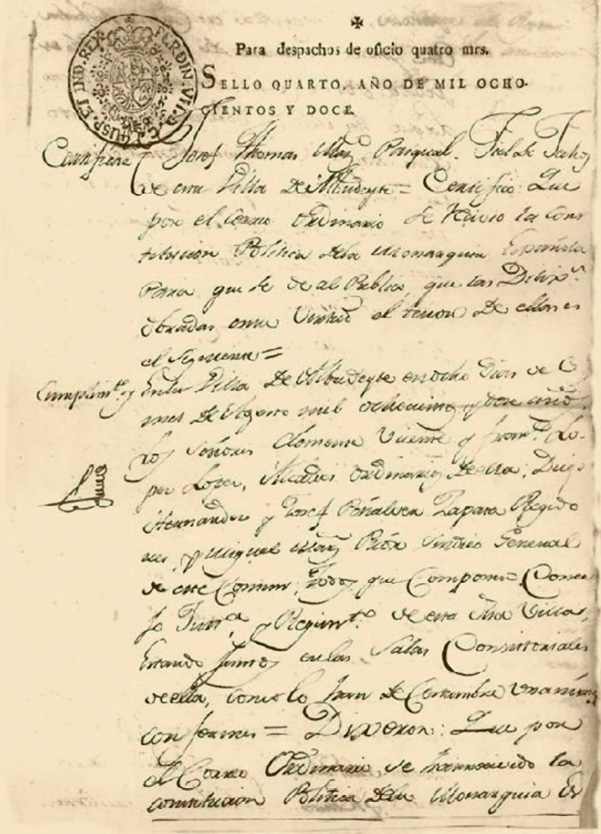 Para despachos de oficio quatro mrs.
SELLO QUARTO, AÑO DE MIL OCHO-
CIENTOS Y DOCE.
HISP. ET IND. REX FERDIN. VII. D. G.
Josef Thomas Mrñ Pasqual. Fiel de Fechos
de esta Villa de Albudeyte = Certifico: Que
por el Correo Ordinario se Recivio la Cons
titucion Politica dela Monarquia Española
Para que se de al Publico, que las Dilix.s
obradas en su Virtud el tenor de ellas es
el Siguiente =
Cumplim.to En la Villa de Albudeyte en ocho dias de el
mes de Agosto mil ochocientos y doce años.
Los Señores Clemente Vicente y Fran.co Lo-
per Lopez, Alcaldes Ordinarios de ella; Diego
Hernandez y Josef Peñalver Zapata Regido
res, y Miguel Mrñ Sindico General
de este Comun, todos que Componen Conce
jo Just.a y Regim.to de esta dha Villa,
Estando Juntos en las Salas Consistoriales
de ella, como lo han de Costumbre unanimes
conformes = Dixeron: Que por
el Correo Ordinario se ha rrecivido la
constitucion Politica dela Monarquia Es